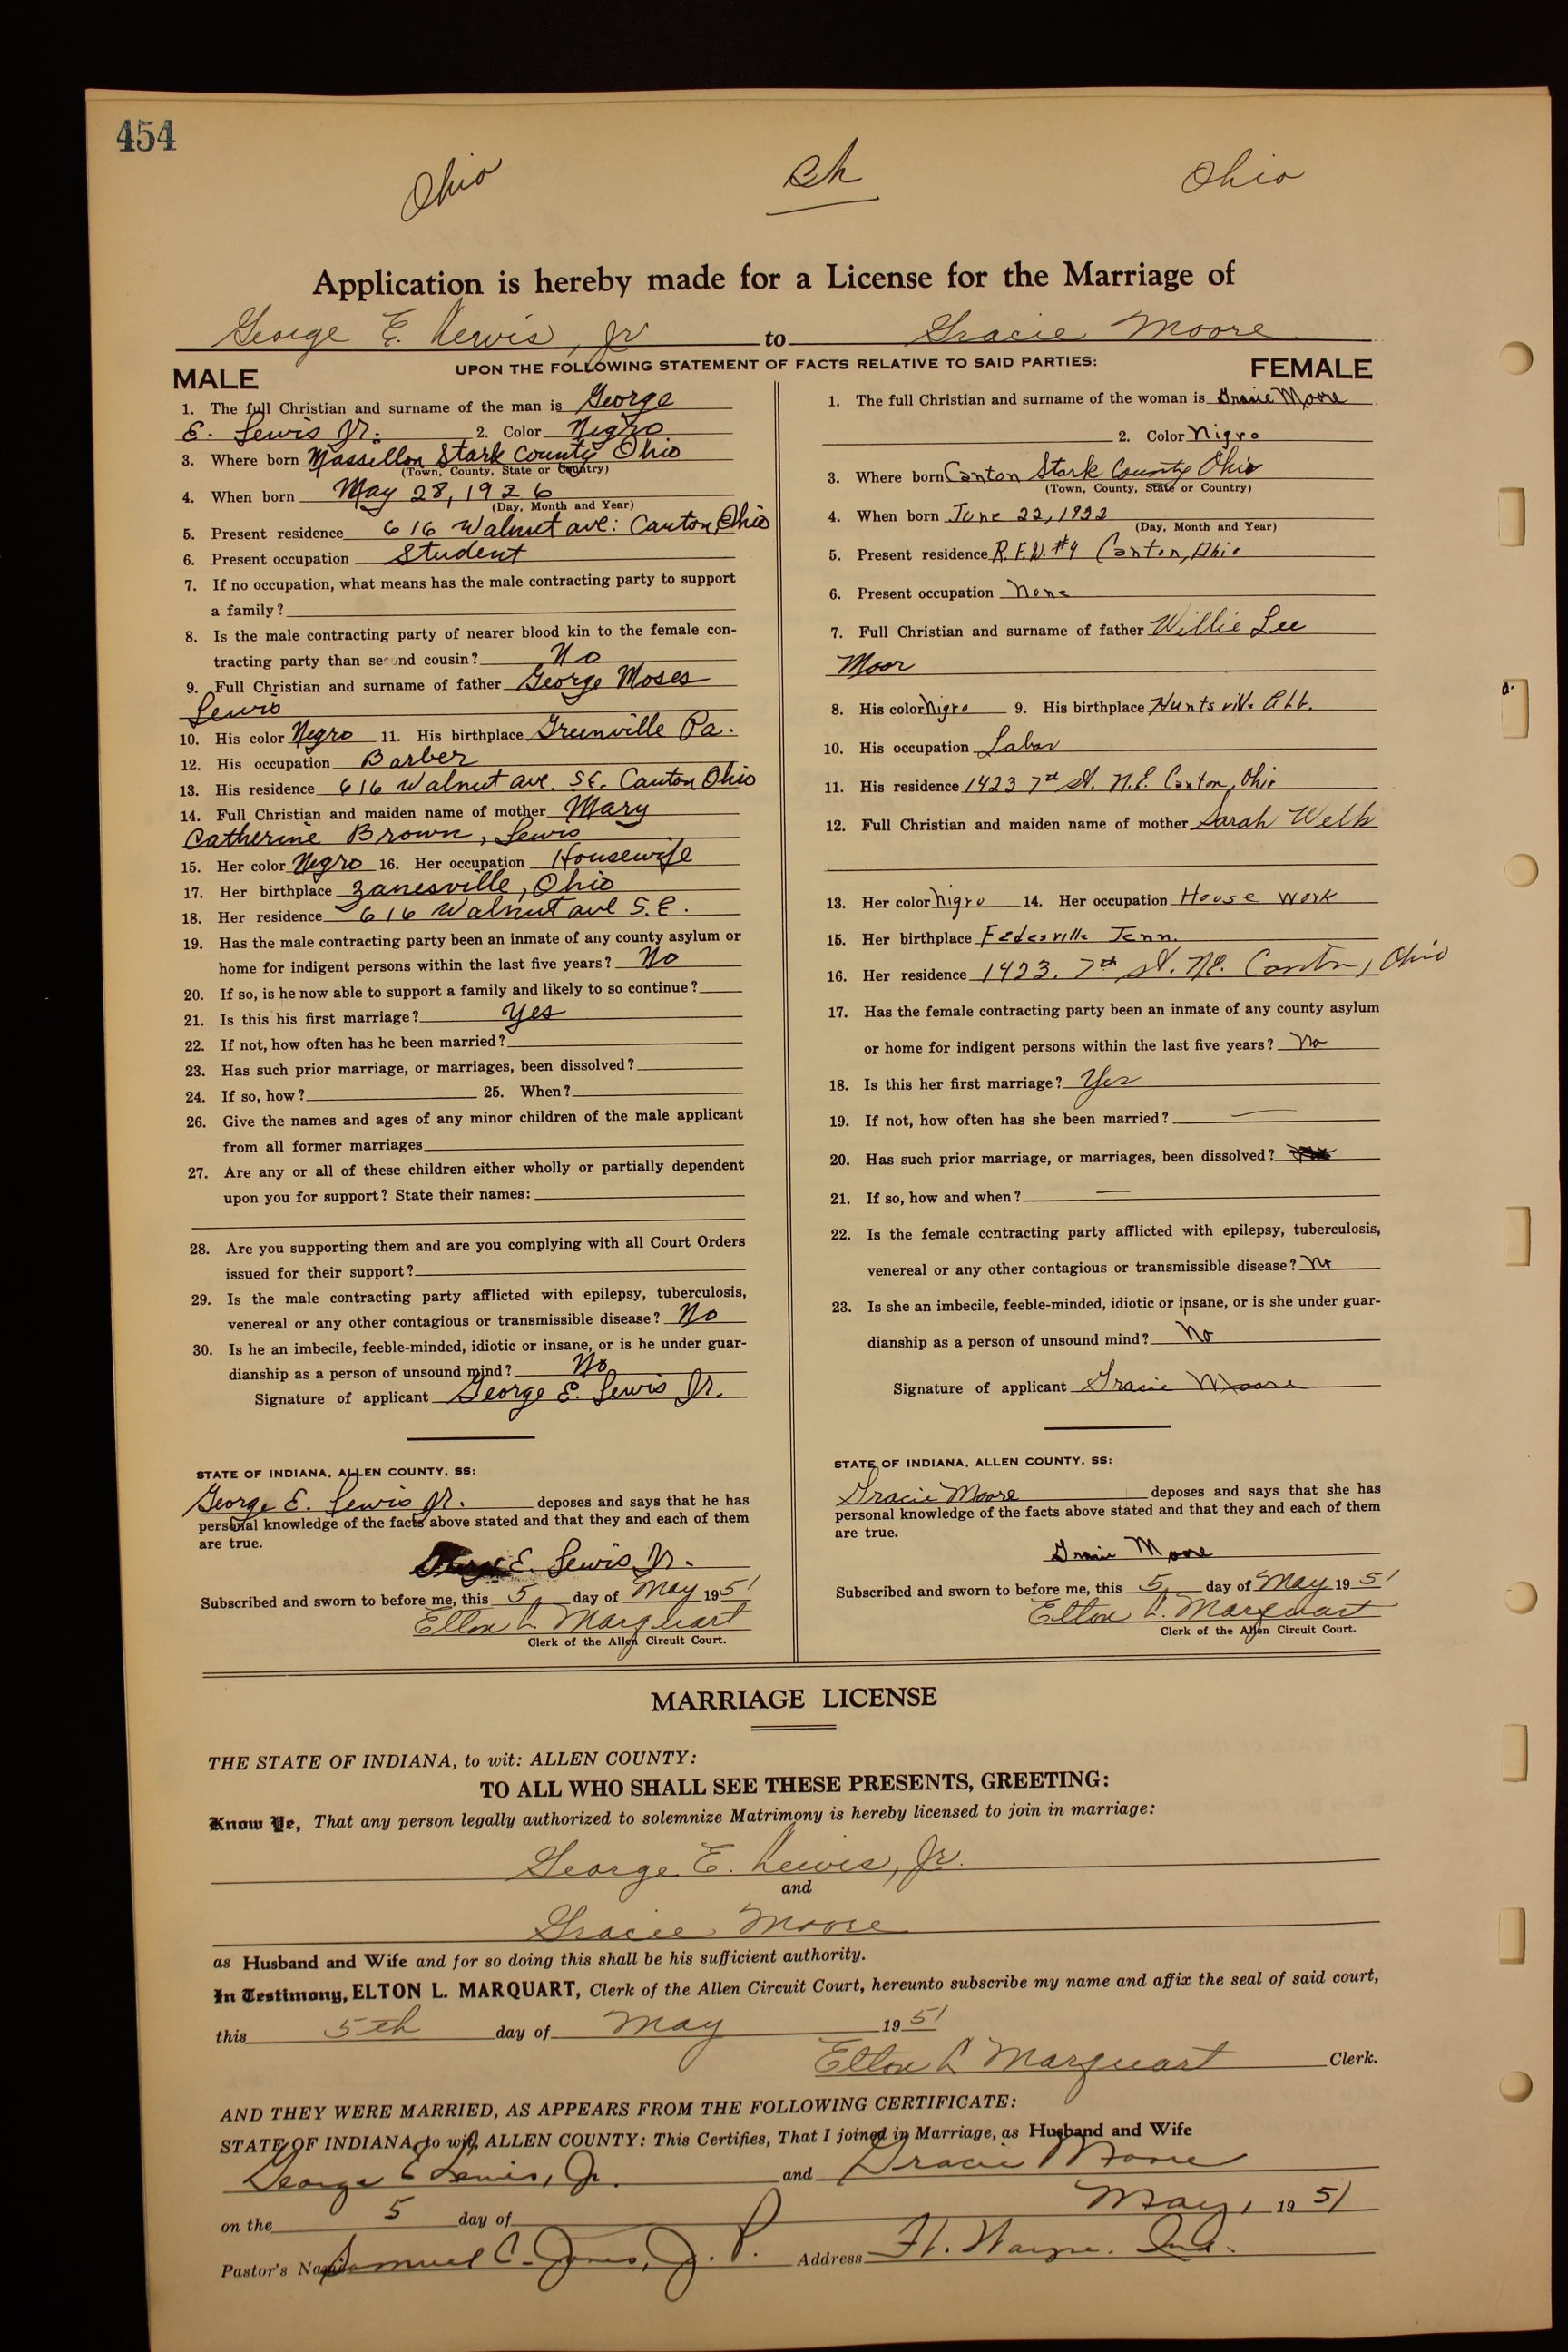 454
Ohio
Ch
Ohio
Application is hereby made for a License for the Marriage of
George E. Lewis, Jr to Gracie Moore
UPON THE FOLLOWING STATEMENT OF FACTS RELATIVE TO SAID PARTIES:
MALE
1. The full Christian and surname of the man is George
E. Lewis Jr. 2. Color Negro
3. Where born Massillon Stark County Ohio
(Town, County, State or Country)
4. When born May 28, 1926
(Day, Month and Year)
5. Present residence 616 Walnut ave: Canton, Ohio
6. Present occupation Student
7. If no occupation, what means has the male contracting party to support
a family?
8. Is the male contracting party of nearer blood kin to the female con-
tracting party than second cousin? No
9. Full Christian and surname of father George Moses
Lewis
10. His color Negro 11. His birthplace Greenville Pa.
12. His occupation Barber
13. His residence 616 Walnut ave. S.E. Canton Ohio
14. Full Christian and maiden name of mother Mary
Catherine Brown, Lewis
15. Her color Negro 16. Her occupation Housewife
17. Her birthplace Zanesville, Ohio
18. Her residence 616 Walnut ave S.E.
19. Has the male contracting party been an inmate of any county asylum or
home for indigent persons within the last five years? No
20. If so, is he now able to support a family and likely to so continue?
21. Is this his first marriage? Yes
22. If not, how often has he been married?
23. Has such prior marriage, or marriages, been dissolved?
24. If so, how? 25. When?
26. Give the names and ages of any minor children of the male applicant
from all former marriages
27. Are any or all of these children either wholly or partially dependent
upon you for support? State their names:
28. Are you supporting them and are you complying with all Court Orders
issued for their support?
29. Is the male contracting party afflicted with epilepsy, tuberculosis,
venereal or any other contagious or transmissible disease? No
30. Is he an imbecile, feeble-minded, idiotic or insane, or is he under guar-
dianship as a person of unsound mind? No
Signature of applicant George E. Lewis Jr.
STATE OF INDIANA, ALLEN COUNTY, SS:
George E. Lewis Jr. deposes and says that he has
personal knowledge of the facts above stated and that they and each of them
are true.
George E. Lewis Jr.
Subscribed and sworn to before me, this 5 day of May 1951
Elton L. Marquart
Clerk of the Allen Circuit Court.
FEMALE
1. The full Christian and surname of the woman is Gracie Moore
2. Color Nigro
3. Where born Canton Stark County Ohio
(Town, County, State or Country)
4. When born June 22, 1932
(Day, Month and Year)
5. Present residence R.F.D. #4 Canton, Ohio
6. Present occupation None
7. Full Christian and surname of father Willie Lee
Moor
8. His color Nigro 9. His birthplace Huntsville
10. His occupation Labor
11. His residence 1423 7th St. N.E. Canton, Ohio
12. Full Christian and maiden name of mother Sarah
13. Her color Nigro 14. Her occupation House work
15. Her birthplace Tenn.
16. Her residence 1423. 7th St. N.E. Canton, Ohio
17. Has the female contracting party been an inmate of any county asylum
or home for indigent persons within the last five years? No
18. Is this her first marriage? Yes
19. If not, how often has she been married? —
20. Has such prior marriage, or marriages, been dissolved?
21. If so, how and when? —
22. Is the female contracting party afflicted with epilepsy, tuberculosis,
venereal or any other contagious or transmissible disease? No
23. Is she an imbecile, feeble-minded, idiotic or insane, or is she under guar-
dianship as a person of unsound mind? No
Signature of applicant Gracie Moore
STATE OF INDIANA, ALLEN COUNTY, SS:
Gracie Moore deposes and says that she has
personal knowledge of the facts above stated and that they and each of them
are true.
Gracie Moore
Subscribed and sworn to before me, this 5 day of May 1951
Elton L. Marquart
Clerk of the Allen Circuit Court.
MARRIAGE LICENSE
THE STATE OF INDIANA, to wit: ALLEN COUNTY:
TO ALL WHO SHALL SEE THESE PRESENTS, GREETING:
Know Ye, That any person legally authorized to solemnize Matrimony is hereby licensed to join in marriage:
George E. Lewis, Jr.
and
Gracie Moore
as Husband and Wife and for so doing this shall be his sufficient authority.
In Testimony, ELTON L. MARQUART, Clerk of the Allen Circuit Court, hereunto subscribe my name and affix the seal of said court,
this 5th day of May 1951
Elton L Marquart Clerk.
AND THEY WERE MARRIED, AS APPEARS FROM THE FOLLOWING CERTIFICATE:
STATE OF INDIANA, to wit, ALLEN COUNTY: This Certifies, That I joined in Marriage, as Husband and Wife
George E Lewis, Jr. and Gracie Moore
on the 5 day of May, 1951
Pastor's Name Samuel C. Jones, J. P. Address Ft. Wayne. Ind.